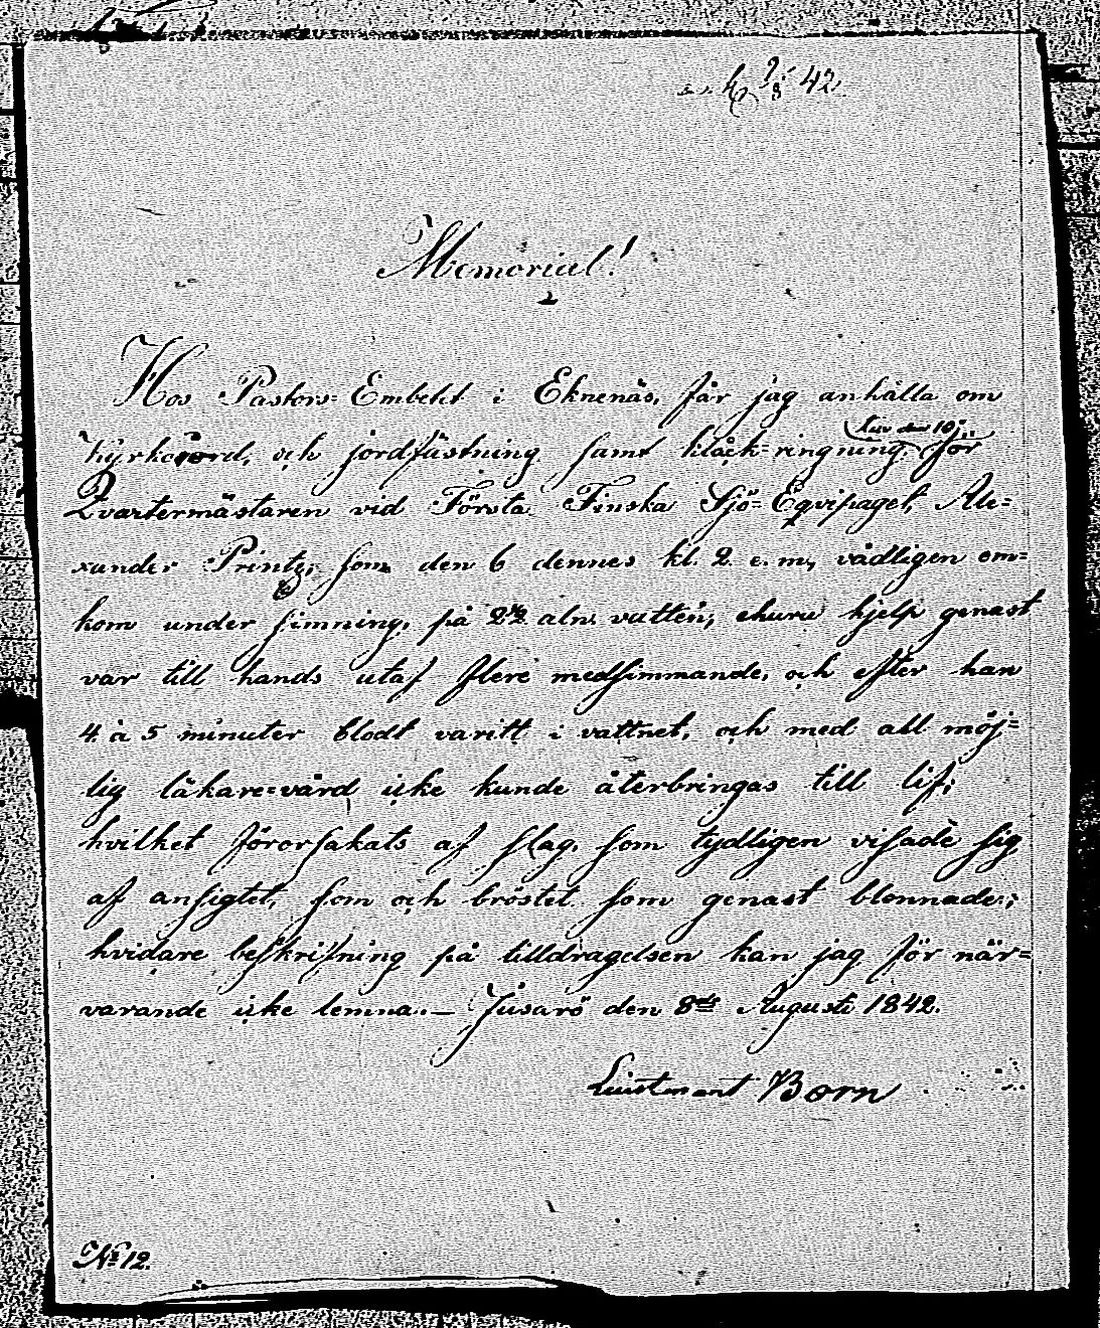 9/8 42.
Memorial!
Hos Pastors=Embetet i Eknenäs, får jag anhålla om
den 10
Kyrkoord, och jordfästning samt klåck=ringning, för
Qvartermästaren vid Första Finska Sjö=Eqvipaget, Ale=
xander Printz, som den 6 dennes kl. 2 e.m., vådligen om=
kom under simning, på 2½ aln. vatten, ehuru hjelp genast
var till hands utaf flere medsimmande, och efter han
4 à 5 minuter blodt varitt i vattnet, och med all möj=
lig läkare=vård icke kunde återbringas till lif;
hvilket förorsakats af slag, som tydligen visade sig
af ansigtet, som och bröstet som genast blonnade;
hvidare beskrifning på tilldragelsen kan jag för när=
varande icke lemna. — Jusarö den 8de Augusti 1842.
Lieutenant Born
No 12.